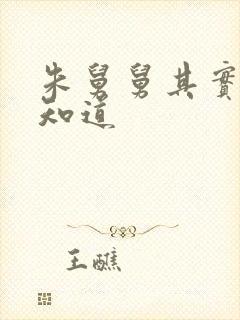 朱舅舅其實
知道
王醮